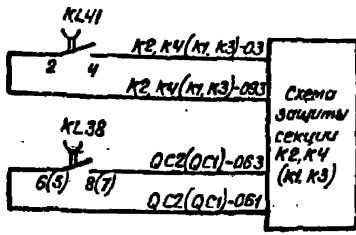 KL41
2 4
K2, K4 (K1, K3)-03
K2, K4 (K1, K3)-093
KL38
6(5) 8(7)
QC2 (QC1)-063
QC2 (QC1)-061
Схема
защиты
секции
K2, K4
(K1, K3)